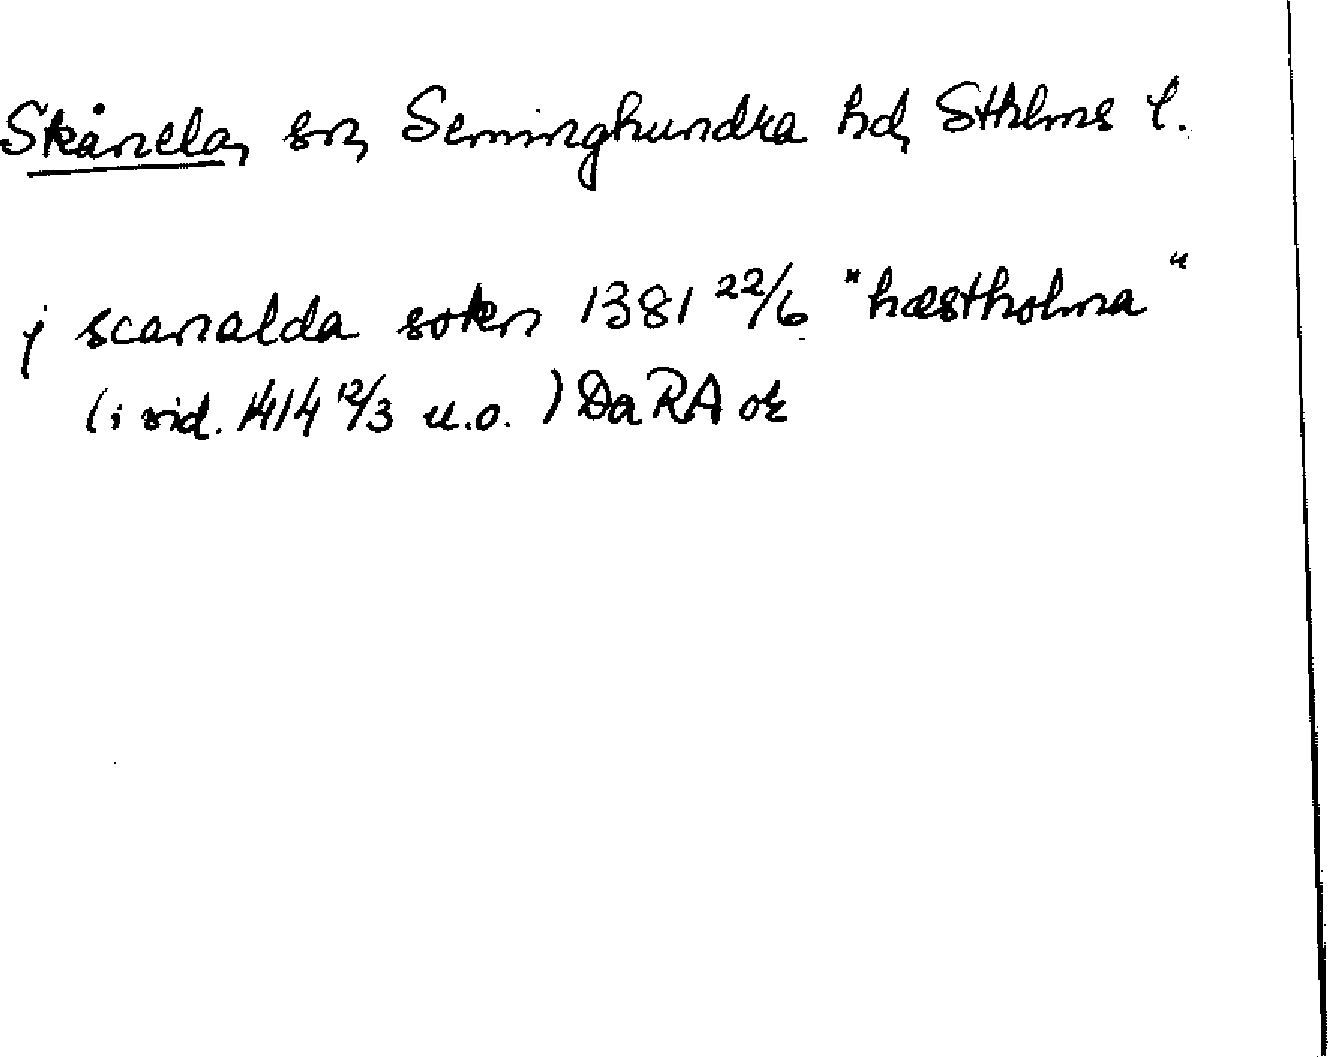 Skånela, sn, Seminghundra hd, Sthlms l.
j scanalda sokn 1381 22/6 "hæstholma"
(i vid. 1414 12/3 u.o.) Da RA or